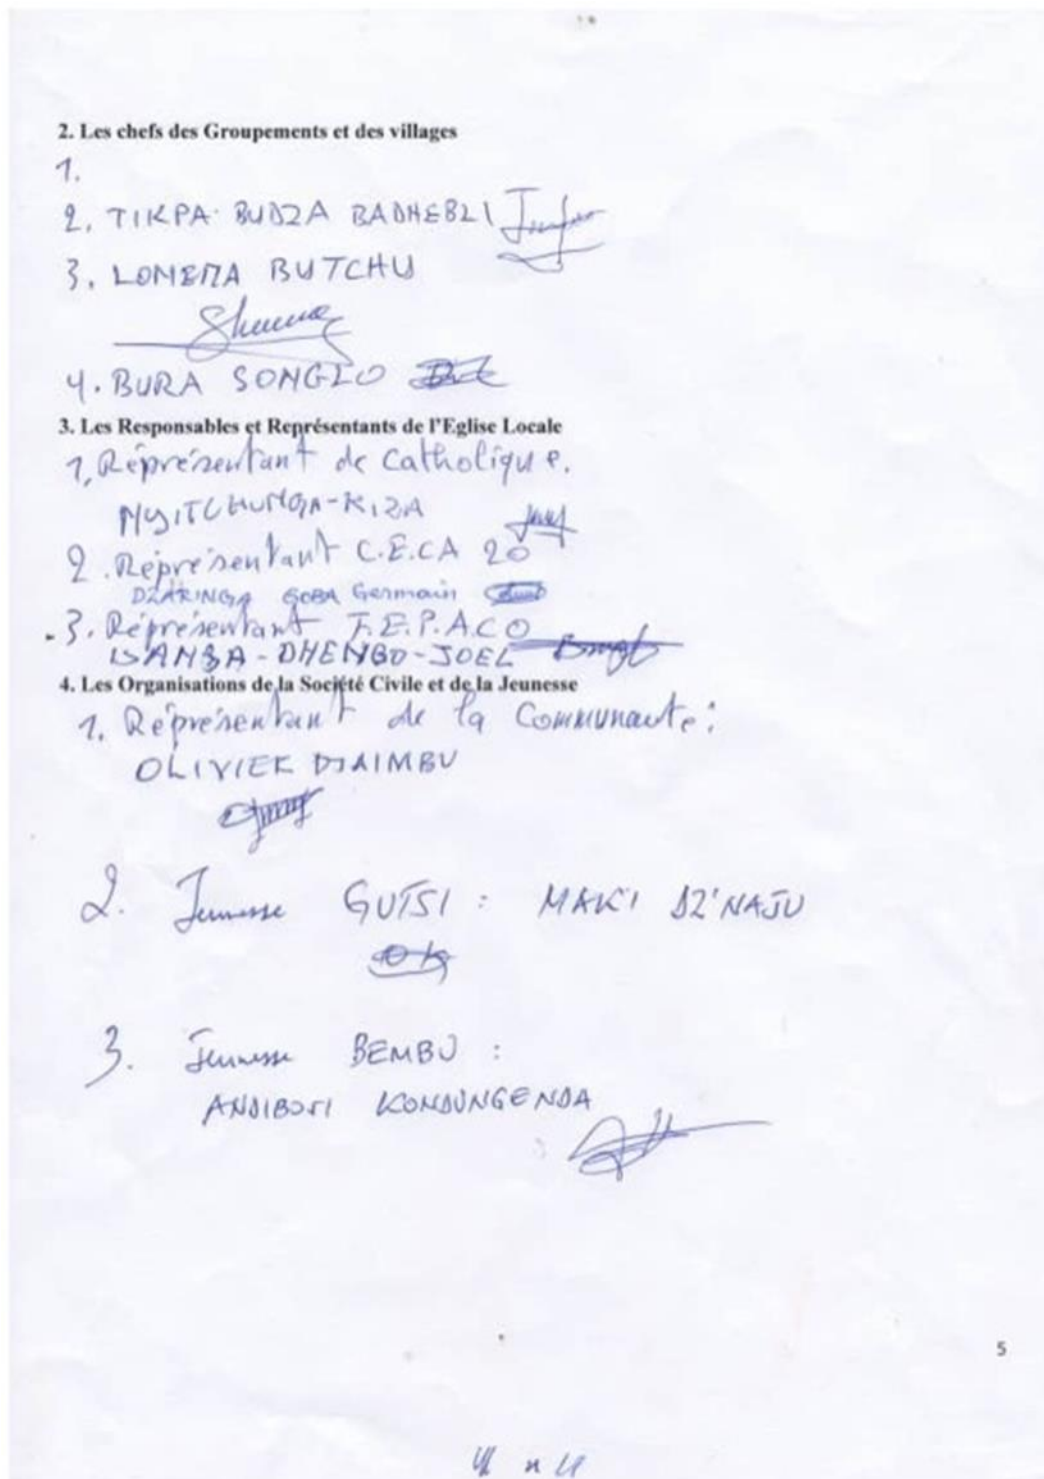 2. Les chefs des Groupements et des villages
1.
2. TIKPA BUDZA BADHEBLI
3. LONEMA BUTCHU
4. BURA SONGIO
3. Les Responsables et Représentants de l'Eglise Locale
1, Réprésentant de Catholique.
NYITCHUNGA-KIZA
2. Réprésentant C.E.CA 20
DZARINGA GOBA Germain
3. Réprésentant F.E.P.A.CO
DHENGO-JOEL
4. Les Organisations de la Société Civile et de la Jeunesse
1. Réprésentant de la Communauté:
OLIVIER DJAIMBU
2. Jeunesse GUTSI : MAKI DZ'NAJU
3. Jeunesse BEMBU :
ANDIBOSI KONDUNGENDA
5